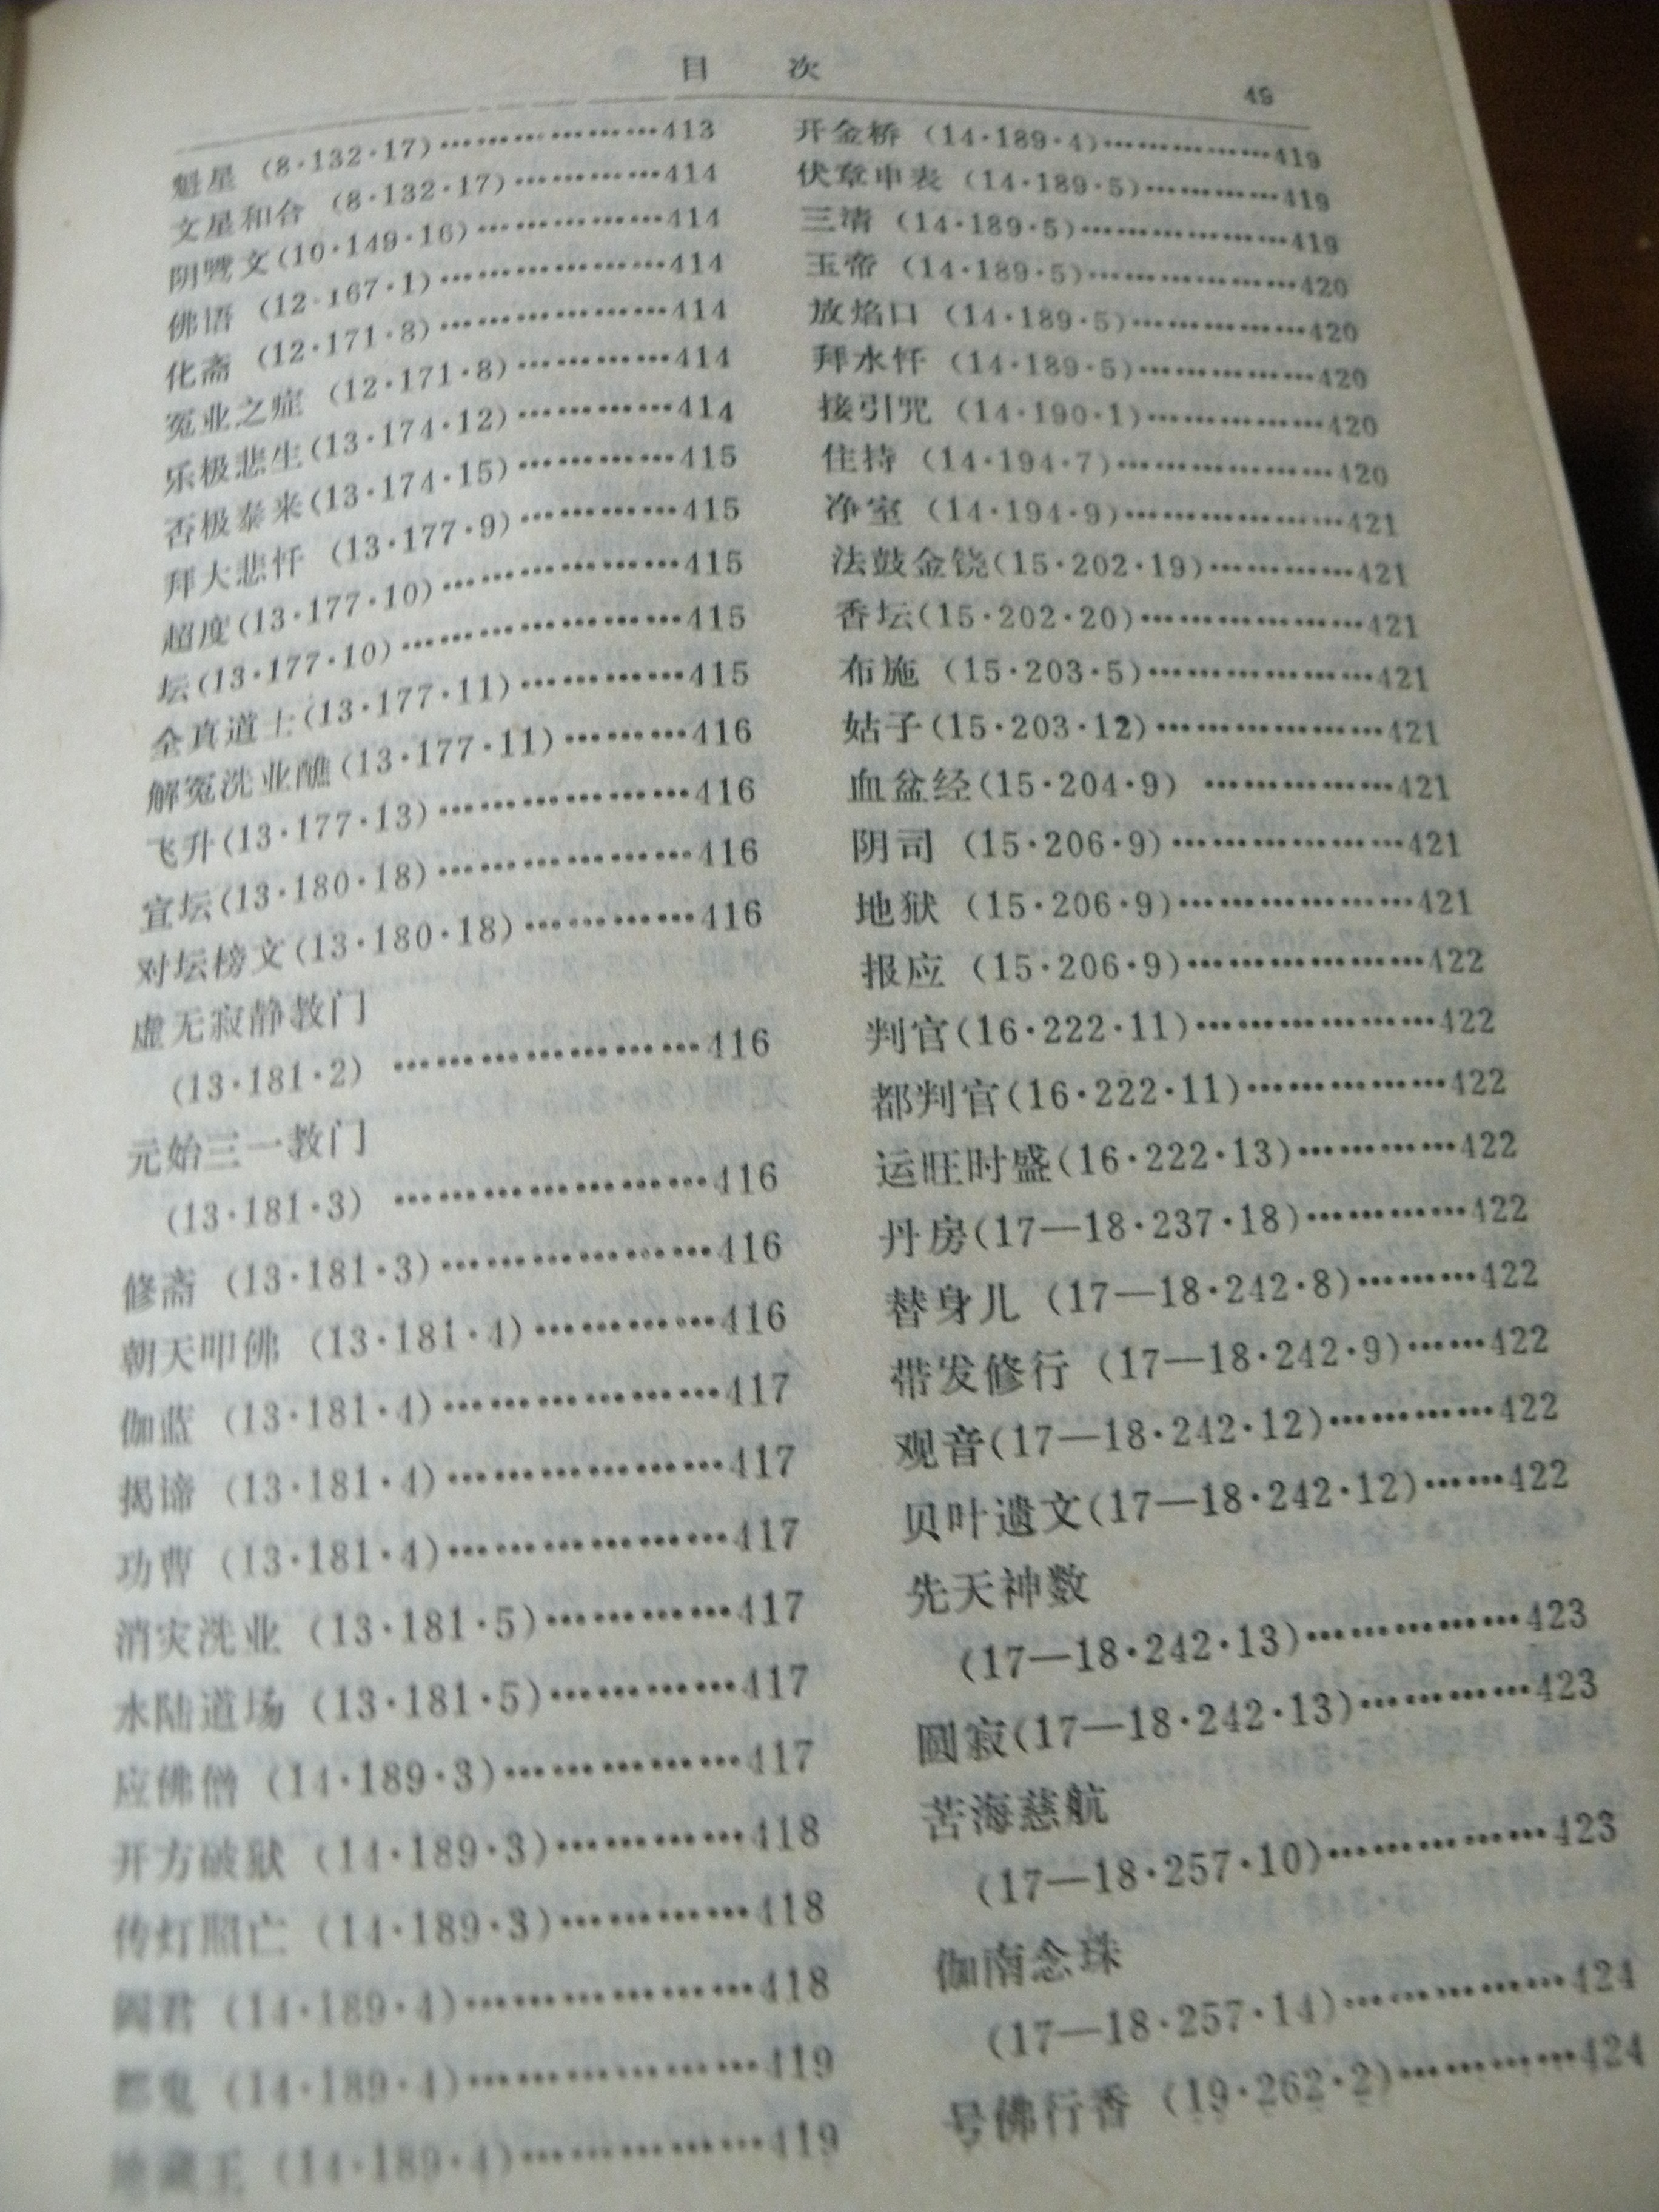 目 次
49
魁星 (8·132·17)…………………413
文星和合 (8·132·17)……………414
阴骘文(10·149·16)………………414
佛语 (12·167·1)…………………414
化斋 (12·171·8)…………………414
冤业之症 (12·171·8)……………414
乐极悲生(13·174·12)……………414
否极泰来(13·174·15)……………415
拜大悲忏 (13·177·9)……………415
超度(13·177·10)…………………415
坛(13·177·10)……………………415
全真道士(13·177·11)……………415
解冤洗业醮(13·177·11)…………416
飞升(13·177·13)…………………416
宣坛(13·180·18)…………………416
对坛榜文(13·180·18)……………416
虚无寂静教门
(13·181·2) ……………………416
元始三一教门
(13·181·3) ……………………416
修斋 (13·181·3)…………………416
朝天叩佛 (13·181·4)……………416
伽蓝 (13·181·4)…………………417
揭谛 (13·181·4)…………………417
功曹 (13·181·4)…………………417
消灾洗业 (13·181·5)……………417
水陆道场 (13·181·5)……………417
应佛僧 (14·189·3)………………417
开方破狱 (14·189·3)……………418
传灯照亡 (14·189·3)……………418
阎君 (14·189·4)…………………418
都鬼 (14·189·4)…………………419
地藏王 (14·189·4)………………419
开金桥 (14·189·4)………………419
伏章申表 (14·189·5)……………419
三清 (14·189·5)…………………419
玉帝 (14·189·5)…………………420
放焰口 (14·189·5)………………420
拜水忏 (14·189·5)………………420
接引咒 (14·190·1)………………420
住持 (14·194·7)…………………420
净室 (14·194·9)…………………421
法鼓金铙(15·202·19)……………421
香坛(15·202·20)…………………421
布施 (15·203·5)…………………421
姑子(15·203·12)…………………421
血盆经(15·204·9) ………………421
阴司 (15·206·9)…………………421
地狱 (15·206·9)…………………421
报应 (15·206·9)…………………422
判官(16·222·11)…………………422
都判官(16·222·11)………………422
运旺时盛(16·222·13)……………422
丹房(17—18·237·18)……………422
替身儿 (17—18·242·8)…………422
带发修行 (17—18·242·9)………422
观音(17—18·242·12)……………422
贝叶遗文(17—18·242·12)………422
先天神数
(17—18·242·13)…………………423
圆寂(17—18·242·13)……………423
苦海慈航
(17—18·257·10)…………………423
伽南念珠
(17—18·257·14)…………………424
号佛行香 (19·262·2)……………424